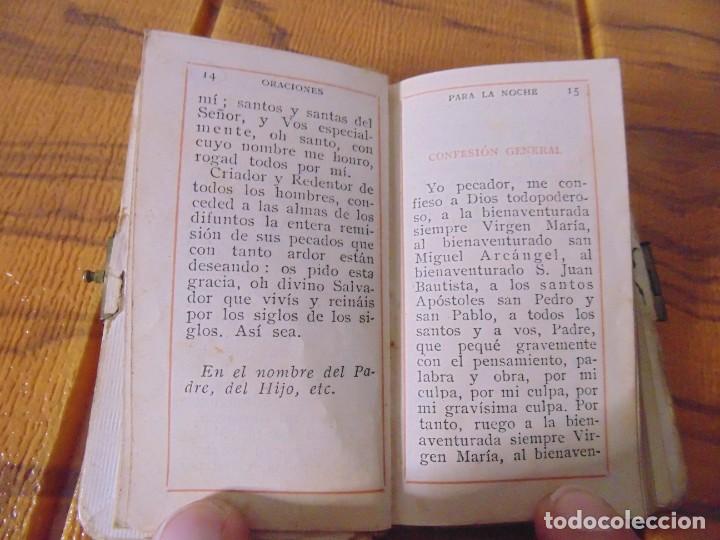 14 ORACIONES
mí; santos y santas del
Señor, y Vos especial-
mente, oh santo, con
cuyo nombre me honro,
rogad todos por mí.
Criador y Redentor de
todos los hombres, con-
ceded a las almas de los
difuntos la entera remi-
sión de sus pecados que
con tanto ardor están
deseando: os pido esta
gracia, oh divino Salva-
dor que vivís y reináis
por los siglos de los si-
glos. Así sea.
En el nombre del Pa-
dre, del Hijo, etc.
PARA LA NOCHE 15
CONFESIÓN GENERAL
Yo pecador, me con-
fieso a Dios todopodero-
so, a la bienaventurada
siempre Virgen María,
al bienaventurado san
Miguel Arcángel, al
bienaventurado S. Juan
Bautista, a los santos
Apóstoles san Pedro y
san Pablo, a todos los
santos y a vos, Padre,
que pequé gravemente
con el pensamiento, pa-
labra y obra, por mi
culpa, por mi culpa, por
mi gravísima culpa. Por
tanto, ruego a la bien-
aventurada siempre Vir-
gen María, al bienaven-
todocoleccion.net